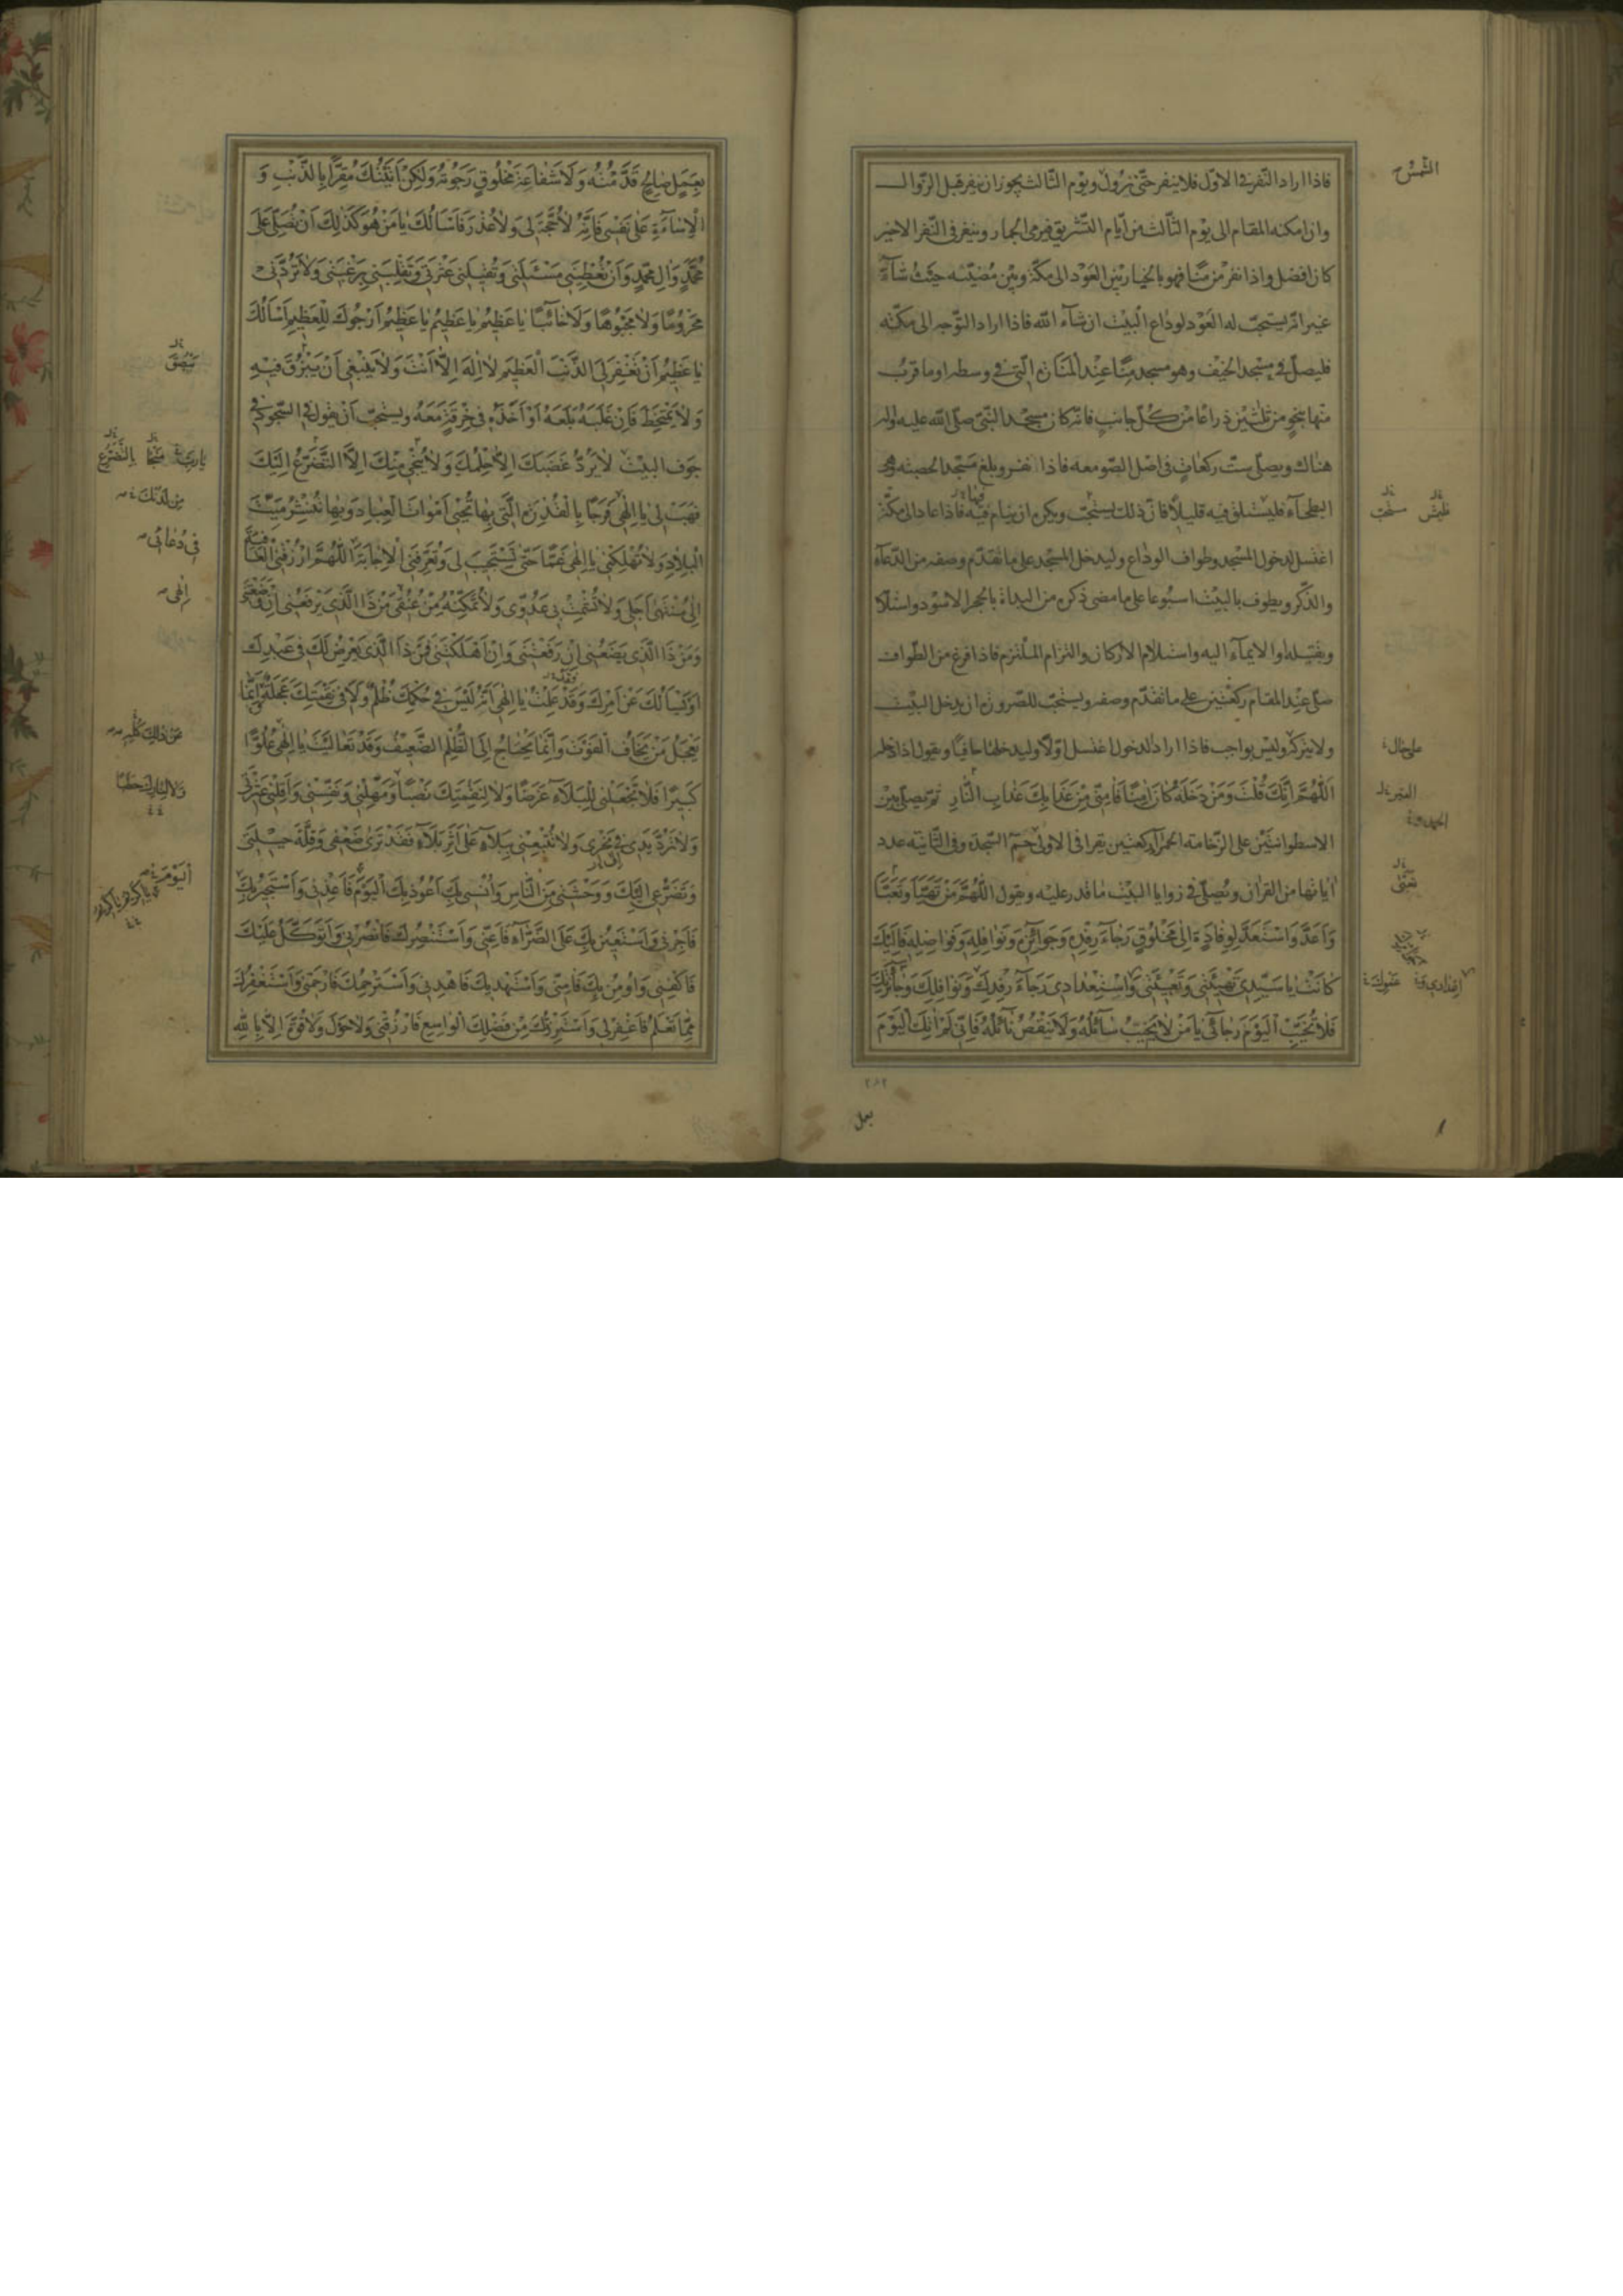 فاذا اراد النّفر فى الاوّل فلا ينفر حتّى تزول ويوم الثّالث يجوز ان ينفر قبل الزّوال
وان امكنه المقام الى يوم الثّالث من ايّام التّشريق فيرمى الجمار وينفر فى النّفر الاخير
كان افضل واذا نفر من منًا فهو بالخيار بين العَوْد الى مكّة وبين مُضيّه حيث شآء
غير انّه يستحبّ له العَوْد لوداع البيْت ان شآء اللّه فاذا اراد التّوجه الى مكّة
فليصلّ فى مسجد الخيْف وهو مسجد منًا عند المنارة الّتى فى وسطه او ما قرب
منها بنحو من ثلثين ذراعًا من كلّ جانبٍ فانّه كان مسجد النّبىّ صلّى اللّه عليه واله
هناك ويصلّى ستّ ركعات فى اصل الصّومعه فاذا نفر وبلغ مسجد الحصبه وهى
البطحآء فليستلق فيه قليلًا فانّ ذلك يستحبّ ويكره ان ينام فيه فاذا عاد الى مكّة
اغتسل لدخول المسجد وطواف الوداع وليدخل المسجد على ما تقدّم وصفه من الدّعآء
والذّكر ويطوف بالبيت اسبوعا على ما مضى ذكره من البداة بالحجر الاسود واستلا
وتقبيله او الايمآء اليه واستلام الاركان والتزام الملتزم فاذا فرغ من الطّواف
صلّى عند المقام ركعتين على ما تقدّم وصفه ويستحبّ للصّرورة ان يدخل البيت
ولا يتركه وليس بواجب فاذا اراد الدخول اغتسل اوّلًا وليدخلها حافيًا ويقول اذا دخله
اَللّهُمَّ اِنَّكَ قُلْتَ وَمَنْ دَخَلَهُ كانَ امِنًا فَامِنّى مِنْ عَذابِكَ عَذابِ النّارِ ثم يصلّى بين
الاسطوانتين على الرّخامة الحمرآء ركعتين يقرا فى الاولى حم السّجدة وفى الثّانية عدد
اياتها من القران ويُصلّى فى زوايا البيت ما قدر عليه ويقول اللّهُمَّ مَنْ تَهَيَّأَ وَتَعَبَّأَ
وَاَعَدَّ وَاسْتَعَدَّ لِوِفادَةٍ اِلى مَخْلُوقٍ رَجآءَ رِفْدِهِ وَجَوائِزِهِ وَنَوافِلِهِ وَفَواضِلِهِ فَاِلَيْكَ
كانَتْ يا سَيِّدى تَهْيِئَتى وَتَعْبِئَتى وَاسْتِعْدادى رَجآءَ رِفْدِكَ وَنَوافِلِكَ وَجائِزَتِكَ
فَلا تُخَيِّبِ الْيَوْمَ رَجآئى يا مَنْ لا يَخيبُ سآئِلُهُ وَلا يَنْقُصُ نآئِلُهُ فَاِنّى لَمْ اتِكَ الْيَوْمَ
الشّمس
على حال
بعمل
بِعَمَلٍ صالِحٍ قَدَّمْتُهُ وَلا شَفاعَةِ مَخْلُوقٍ رَجَوْتُهُ وَلكِنْ اَتَيْتُكَ مُقِرًّا بِالذَّنْبِ وَ
الْاِساءَةِ عَلى نَفْسى فَاِنَّهُ لا حُجَّةَ لى وَلا عُذْرَ فَاَسْاَلُكَ يا مَنْ هُوَ كَذلِكَ اَنْ تُصَلِّىَ عَلى
مُحَمَّدٍ وَالِ مُحَمَّدٍ وَاَنْ تُعْطِيَنى مَسْئَلَتى وَتُقيلَنى عَثْرَتى وَتَقْلِبَنى بِرَغْبَتى وَلا تَرُدَّنى
مَحْرُومًا وَلا مَجْبُوهًا وَلا خآئِبًا يا عَظيمُ يا عَظيمُ يا عَظيمُ اَرْجُوكَ لِلْعَظيمِ اَسْاَلُكَ
يا عَظيمُ اَنْ تَغْفِرَ لِىَ الذَّنْبَ الْعَظيمَ لا اِلهَ اِلّا اَنْتَ وَلا يَنْبَغى اَنْ يَبْزُقَ فيهِ
وَلا يَمْتَخِطَ فَاِنْ غَلَبَهُ بَلَعَهُ اَوْ اَخَذَهُ فى خِرْقَةٍ مَعَهُ ويستحبّ اَنْ يقول فى السّجود فى
جوف البيْت لا يَرُدُّ غَضَبَكَ اِلّا حِلْمُكَ وَلا يُنْجى مِنْكَ اِلَّا التَّضَرُّعُ اِلَيْكَ
فَهَبْ لى يا اِلهى فَرَجًا بِالْقُدْرَةِ الَّتى بِها تُحْيى اَمْواتَ الْعِبادِ وَبِها تَنْشُرُ مَيْتَ
الْبِلادِ وَلا تُهْلِكْنى يا اِلهى غَمًّا حَتّى تَسْتَجيبَ لى وَتُعَرِّفَنِى الْاِجابَةَ اَللّهُمَّ ارْزُقْنِى الْعافِيَةَ
اِلى مُنْتَهى اَجَلى وَلا تُشْمِتْ بى عَدُوّى وَلا تُمَكِّنْهُ مِنْ عُنُقى مَنْ ذَا الَّذى يَرْفَعُنى اِنْ وَضَعْتَنى
وَمَنْ ذَا الَّذى يَضَعُنى اِنْ رَفَعْتَنى وَاِنْ اَهْلَكْتَنى فَمَنْ ذَا الَّذى يَعْرِضُ لَكَ فى عَبْدِكَ
اَوْ يَسْاَلُكَ عَنْ اَمْرِكَ وَقَدْ عَلِمْتُ يا اِلهى اَنَّهُ لَيْسَ فى حُكْمِكَ ظُلْمٌ وَلا فى نَقِمَتِكَ عَجَلَةٌ اِنَّما
يَعْجَلُ مَنْ يَخافُ الْفَوْتَ وَاِنَّما يَحْتاجُ اِلَى الظُّلْمِ الضَّعيفُ وَقَدْ تَعالَيْتَ يا اِلهى عُلُوًّا
كَبيرًا فَلا تَجْعَلْنى لِلْبَلآءِ غَرَضًا وَلا لِنَقِمَتِكَ نَصَبًا وَمَهِّلْنى وَنَفِّسْنى وَاَقِلْنى عَثْرَتى
وَلا تَرُدَّ يَدى فى نَحْرى وَلا تُتْبِعْنى بِبَلآءٍ عَلى اَثَرِ بَلآءٍ فَقَدْ تَرى ضَعْفى وَقِلَّةَ حيلَتى
وَتَضَرُّعى اِلَيْكَ وَوَحْشَتى مِنَ النّاسِ وَاُنْسى بِكَ اَعُوذُ بِكَ الْيَوْمَ فَاَعِذْنى وَاَسْتَجيرُ بِكَ
فَاَجِرْنى وَاَسْتَعينُ بِكَ عَلَى الضَّرّآءِ فَاَعِنّى وَاَسْتَنْصِرُكَ فَانْصُرْنى وَاَتَوَكَّلُ عَلَيْكَ
فَاكْفِنى وَاُومِنُ بِكَ فَامِنّى وَاَسْتَهْديكَ فَاهْدِنى وَاَسْتَرْحِمُكَ فَارْحَمْنى وَاَسْتَغْفِرُكَ
مِمّا تَعْلَمُ فَاغْفِرْلى وَاَسْتَرْزِقُكَ مِنْ فَضْلِكَ الْواسِعِ فَارْزُقْنى وَلا حَوْلَ وَلا قُوَّةَ اِلّا بِاللّهِ
يبصق
من لدنك
فى دعائى
الهى
عن ذلك كله